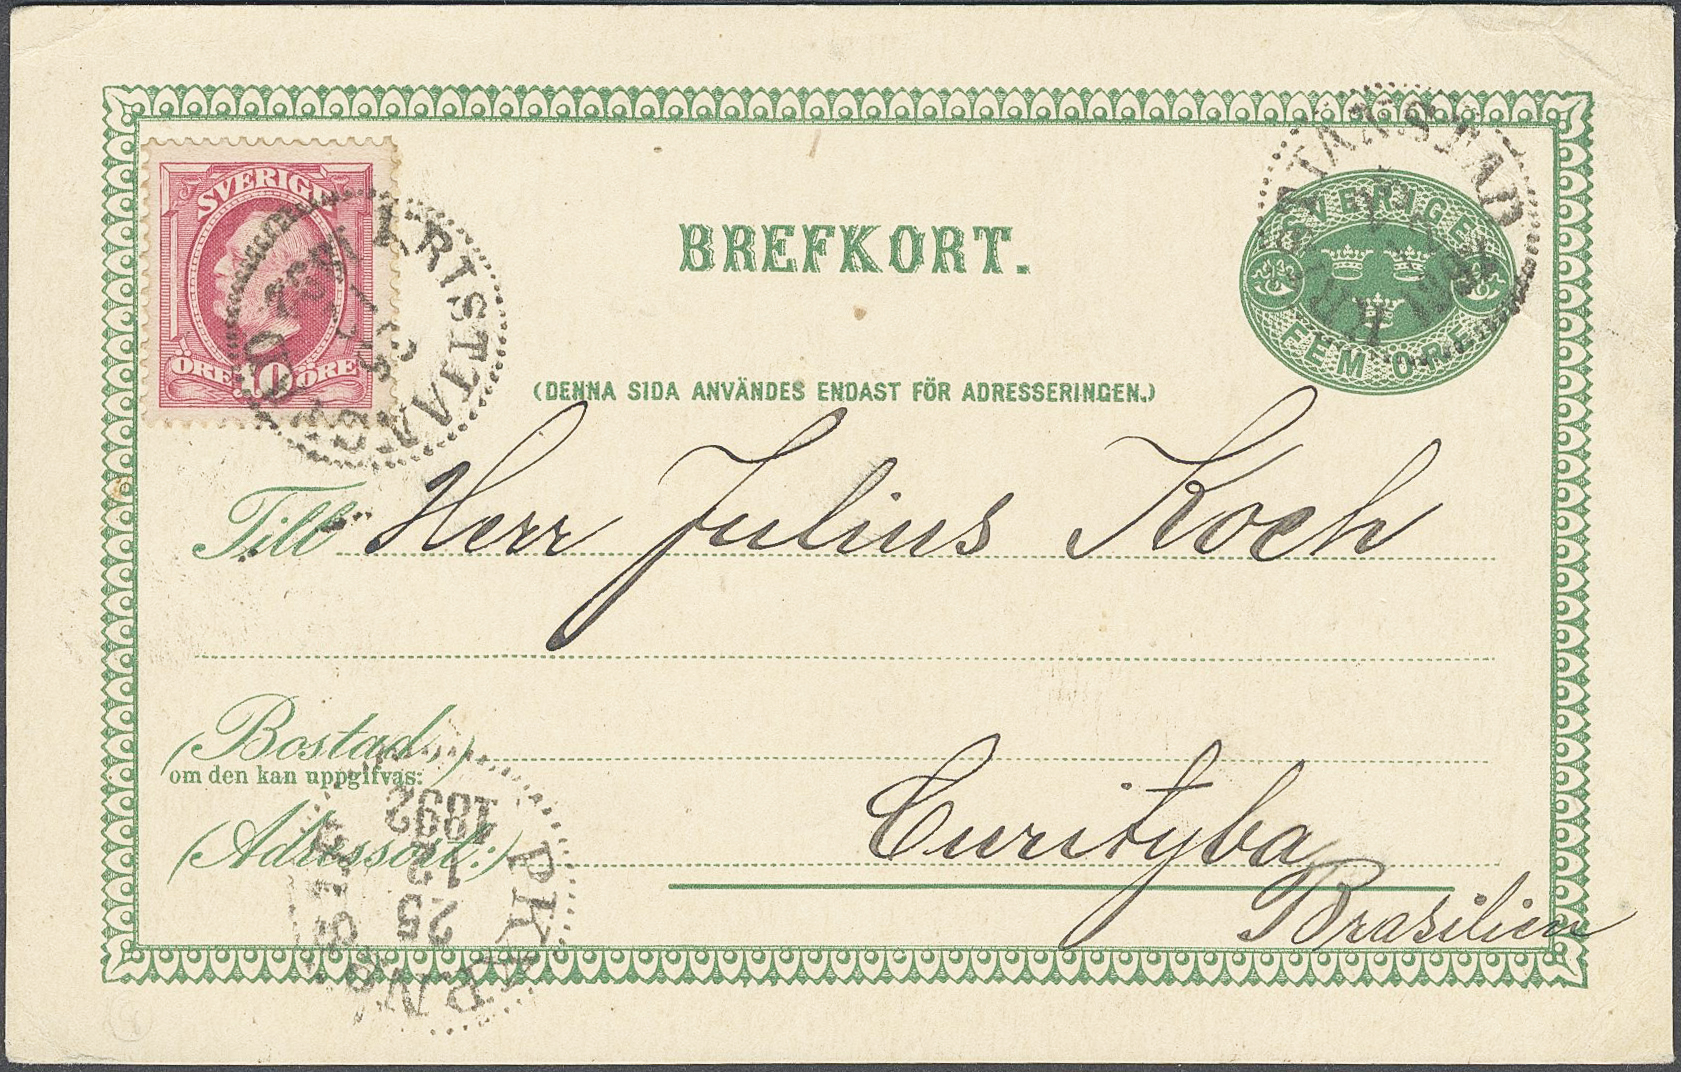 SVERIGE
10
ÖRE ÖRE
KRISTIANSTAD
BREFKORT.
KRISTIANSTAD
SVERIGE
FEM ÖRE
(DENNA SIDA ANVÄNDES ENDAST FÖR ADRESSERINGEN.)
Till Herr Julius Koch
(Bostad,)
om den kan uppgifvas:
(Adressort:) Curityba
Brasilien
PKXP.N
25
12
1892